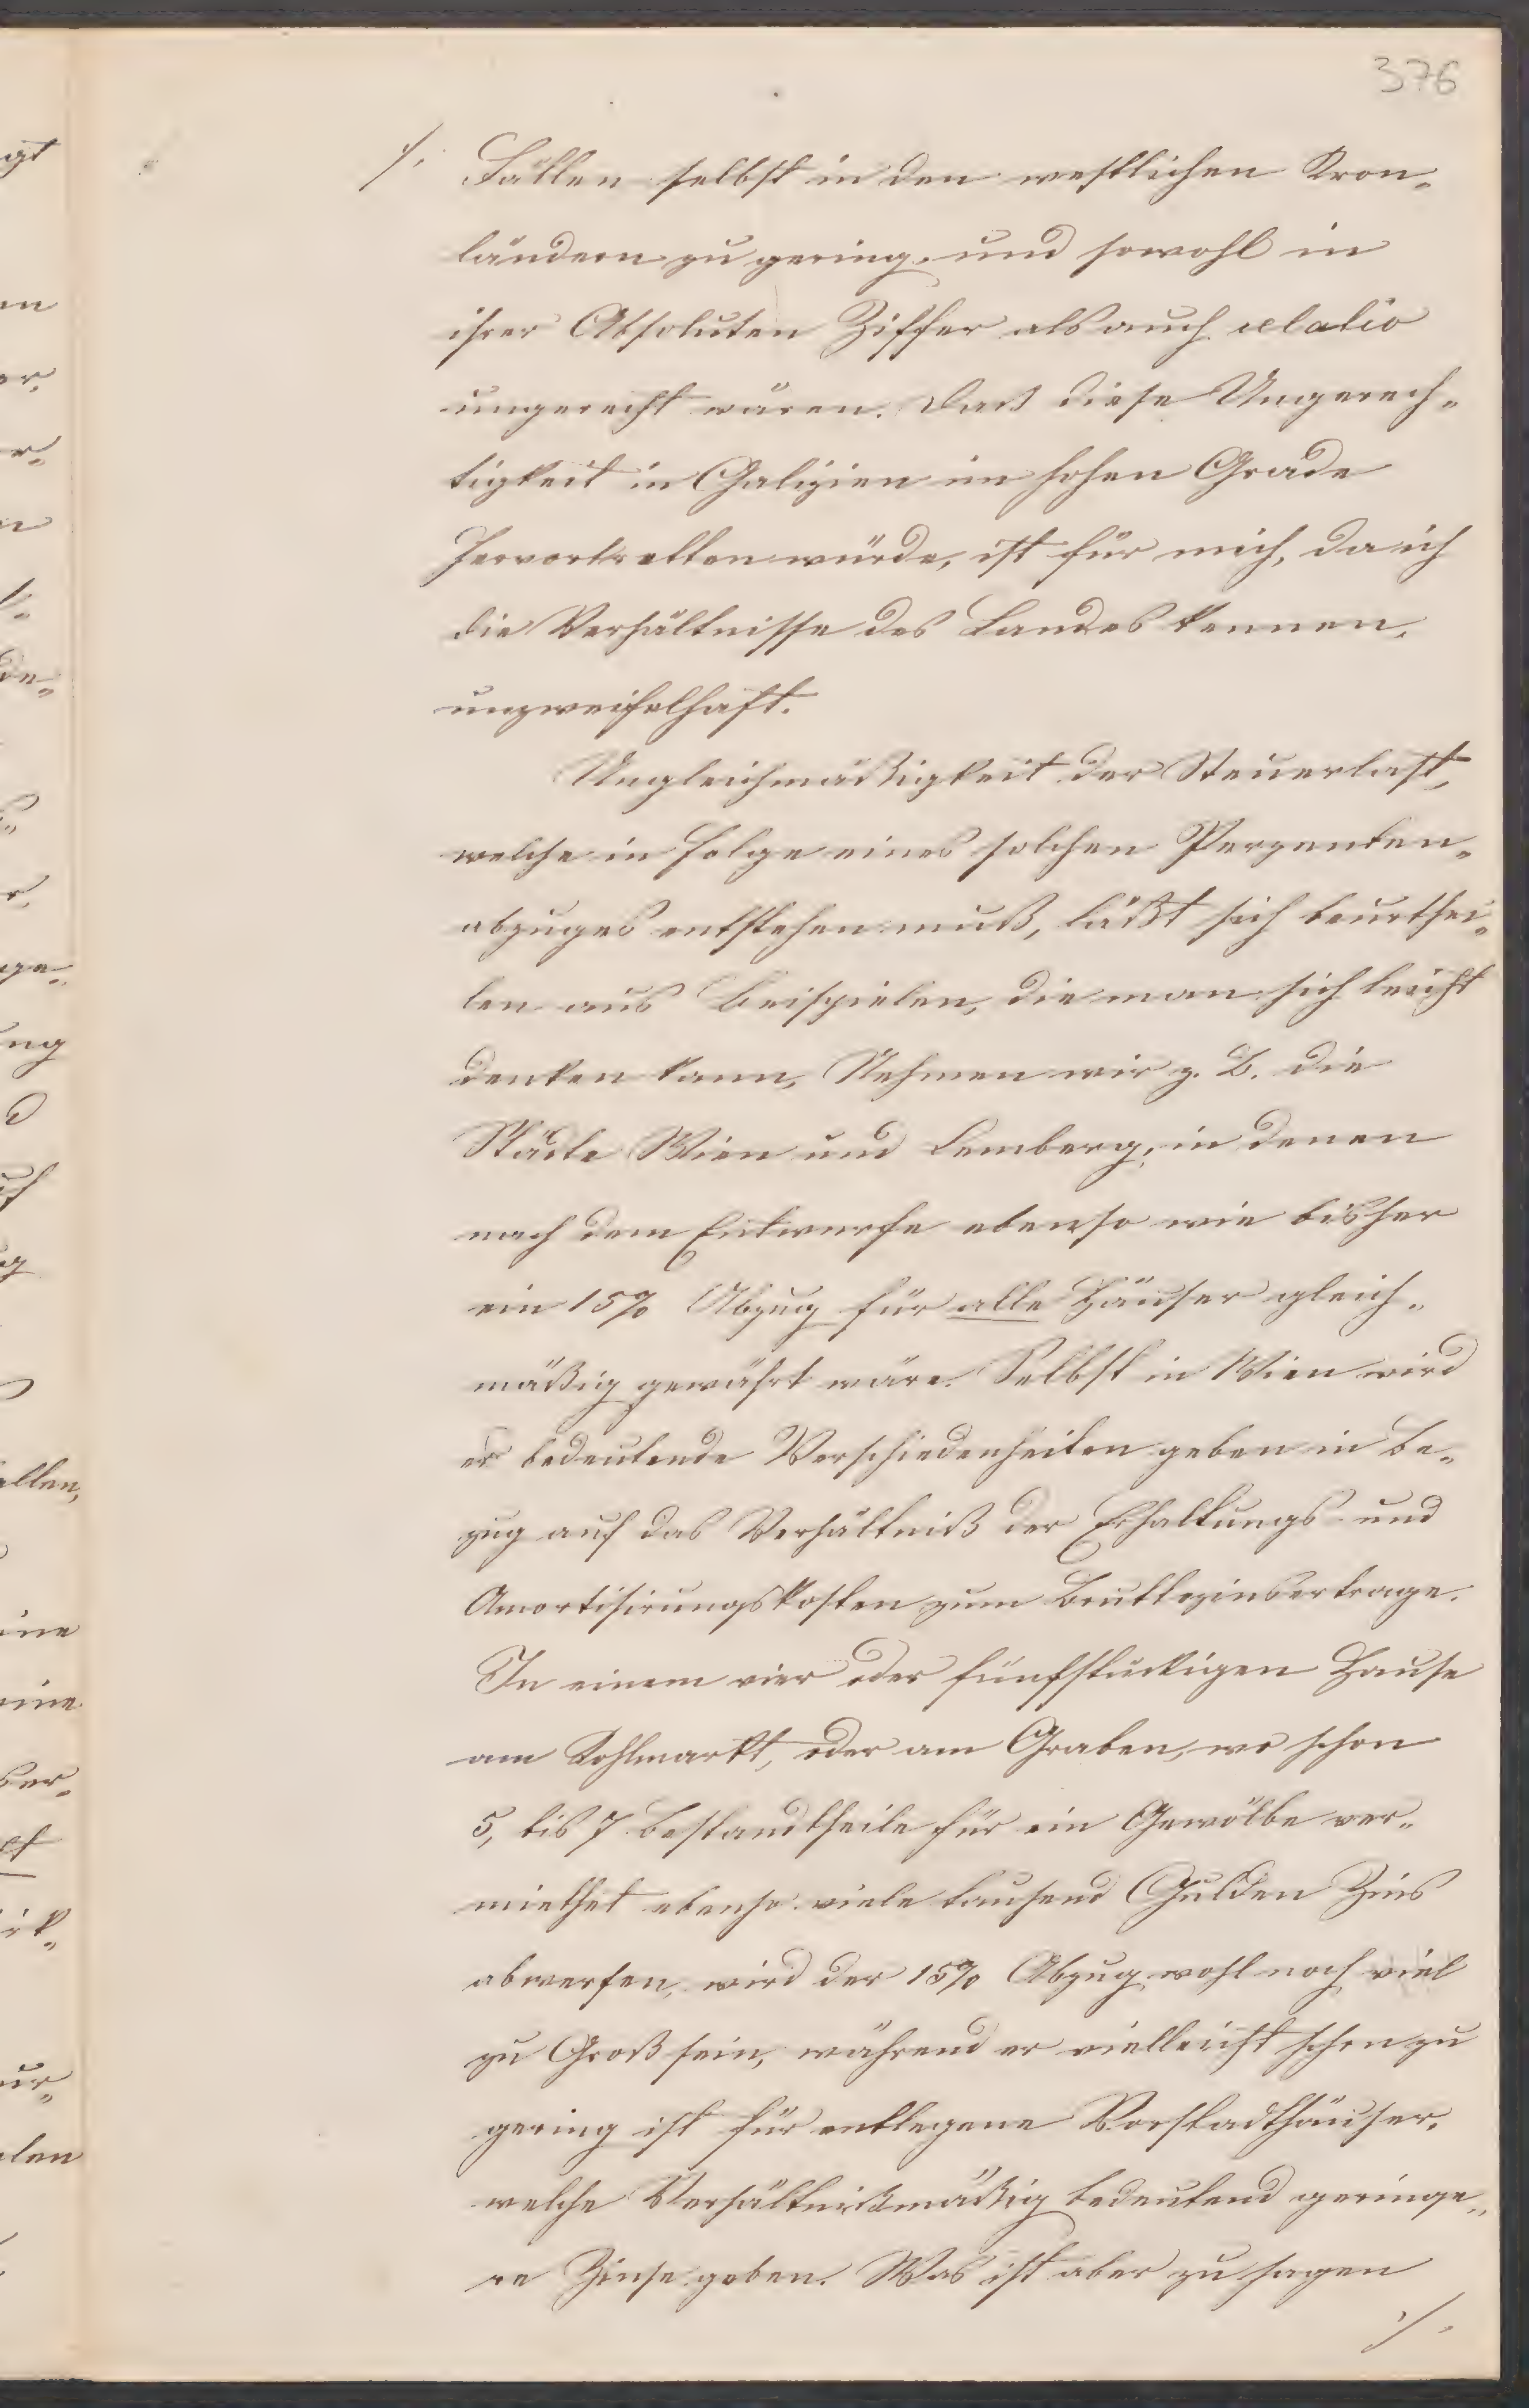 376
/. Fällen selbst in den westlichen Kron-
ländern zu gering, und sowohl in
ihrer Absoluten Ziffer als auch relativ
ungerecht wären. Daß diese Ungerech-
tigkeit in Galizien im hohen Grade
hervortretten würde, ist für mich, da ich
die Verhältnisse des Landes kennen,
unzweifelhaft.
Ungleichmäßigkeit der Steuerlast,
welche in Folge eines solchen Perzenten-
abzuges entstehen muß, läßt sich beurthei-
len aus Beispielen, die man sich leicht
denken kann, Nehmen wir z. B. die
Städte Wien und Lemberg, in denen
nach dem Entwurfe ebenso wie bisher
ein 15% Abzug für alle Häuser gleich-
mäßig gewährt wäre. Selbst in Wien wird
es bedeutende Verschiedenheiten geben in Be-
zug auf das Verhältniß der Erhaltungs- und
Amortisirungskosten zum Bruttozinsertrage.
In einem vier oder fünfstückigen Hause
am Kohlmarkt, oder am Graben, wo schon
5, bis 7 Bestandtheile für ein Gewölbe ver-
miethet ebenso viele tausend Gulden Zins
abwerfen, wird der 15% Abzug wohl noch viel
zu Groß sein, während er vielleicht schon zu
gering ist für entlegene Vorstadthäuser,
welche Verhältnißmäßig bedeutend geringe-
re Zinse geben. Was ist aber zu sagen
./.
gt
en
er,
n
de-
ge-
ung
d
uf
allen,
ine
eine
ber-
irk-
ur-
len